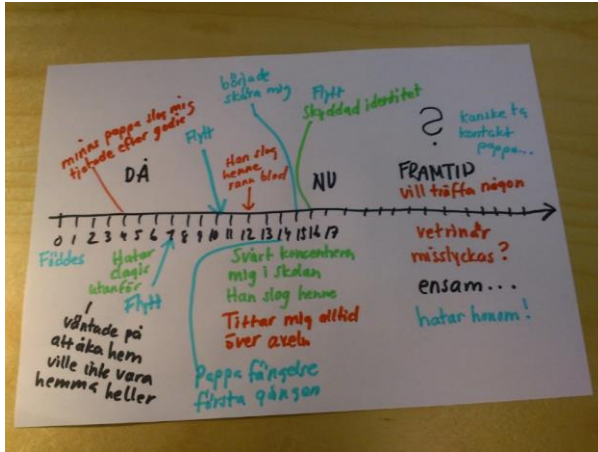 minns pappa slog mig
tjatade efter godis
började
skära mig
Flytt
Flytt
Skyddad identitet
?
kanske ta
kontakt
pappa...
DÅ
Han slog
henne
rann blod
NU
FRAMTID
vill träffa någon
0 1 2 3 4 5 6 7 8 9 10 11 12 13 14 15 16 17
Föddes
Hatar
dagis
utanför
Flytt
väntade på
att åka hem
ville inte vara
hemma heller
Svårt koncentrera
mig i skolan
Han slog henne
Tittar mig alltid
över axeln
Pappa fängelse
första gången
vetrinär
misslyckas?
ensam...
hatar honom!